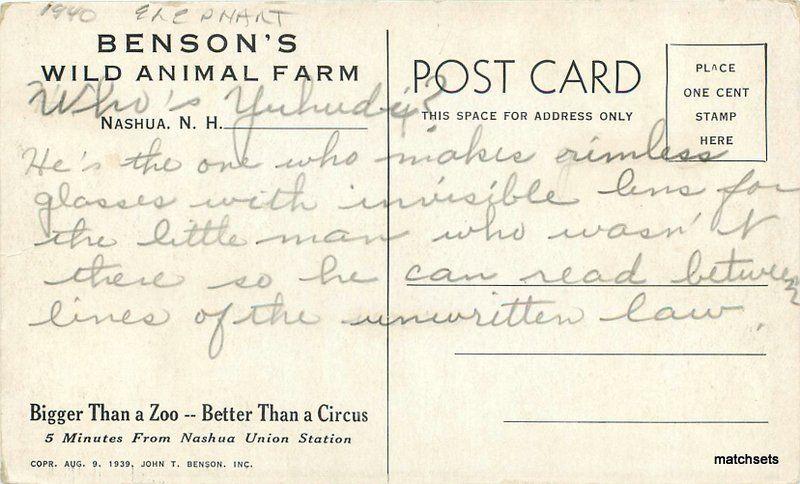 1940 ELEPHART
BENSON'S
WILD ANIMAL FARM
Who's Yuhudi?
NASHUA, N. H.
POST CARD
THIS SPACE FOR ADDRESS ONLY
PLACE
ONE CENT
STAMP
HERE
He's the one who makes rimless
glasses with invisible lens for
the little man who wasn't
there so he can read between
lines of the unwritten law.
Bigger Than a Zoo -- Better Than a Circus
5 Minutes From Nashua Union Station
COPR. AUG. 9, 1939, JOHN T. BENSON, INC.
matchsets